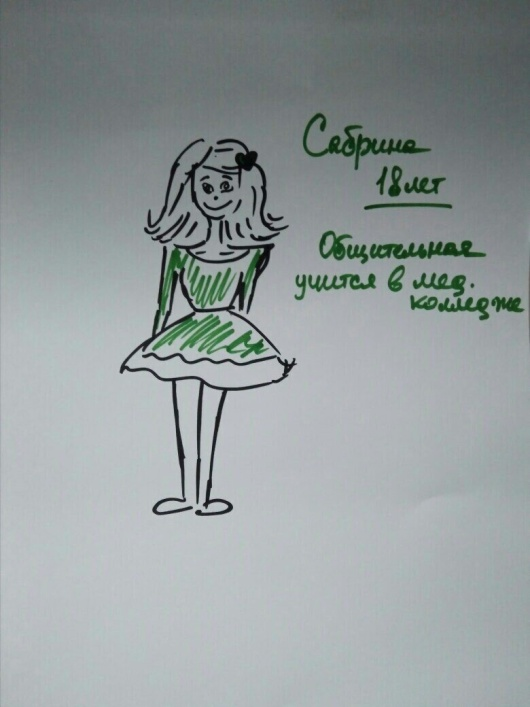 Сабрина
18 лет
Общительная
учится в мед.
колледже